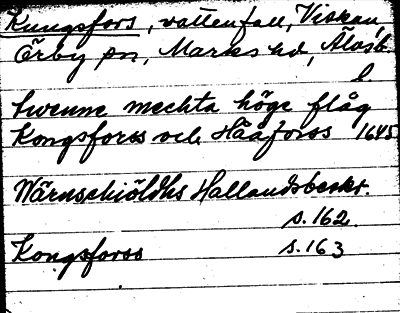 Kungsfors, vattenfall, Viskan,
Örby sn, Marks hd, Älvsb.
l
twenne mechta höge flåg
Kongsforss och Hååforss 1645
Wärnschiöldhs Hallandsbeskr.
s. 162.
Kongsforss s. 163